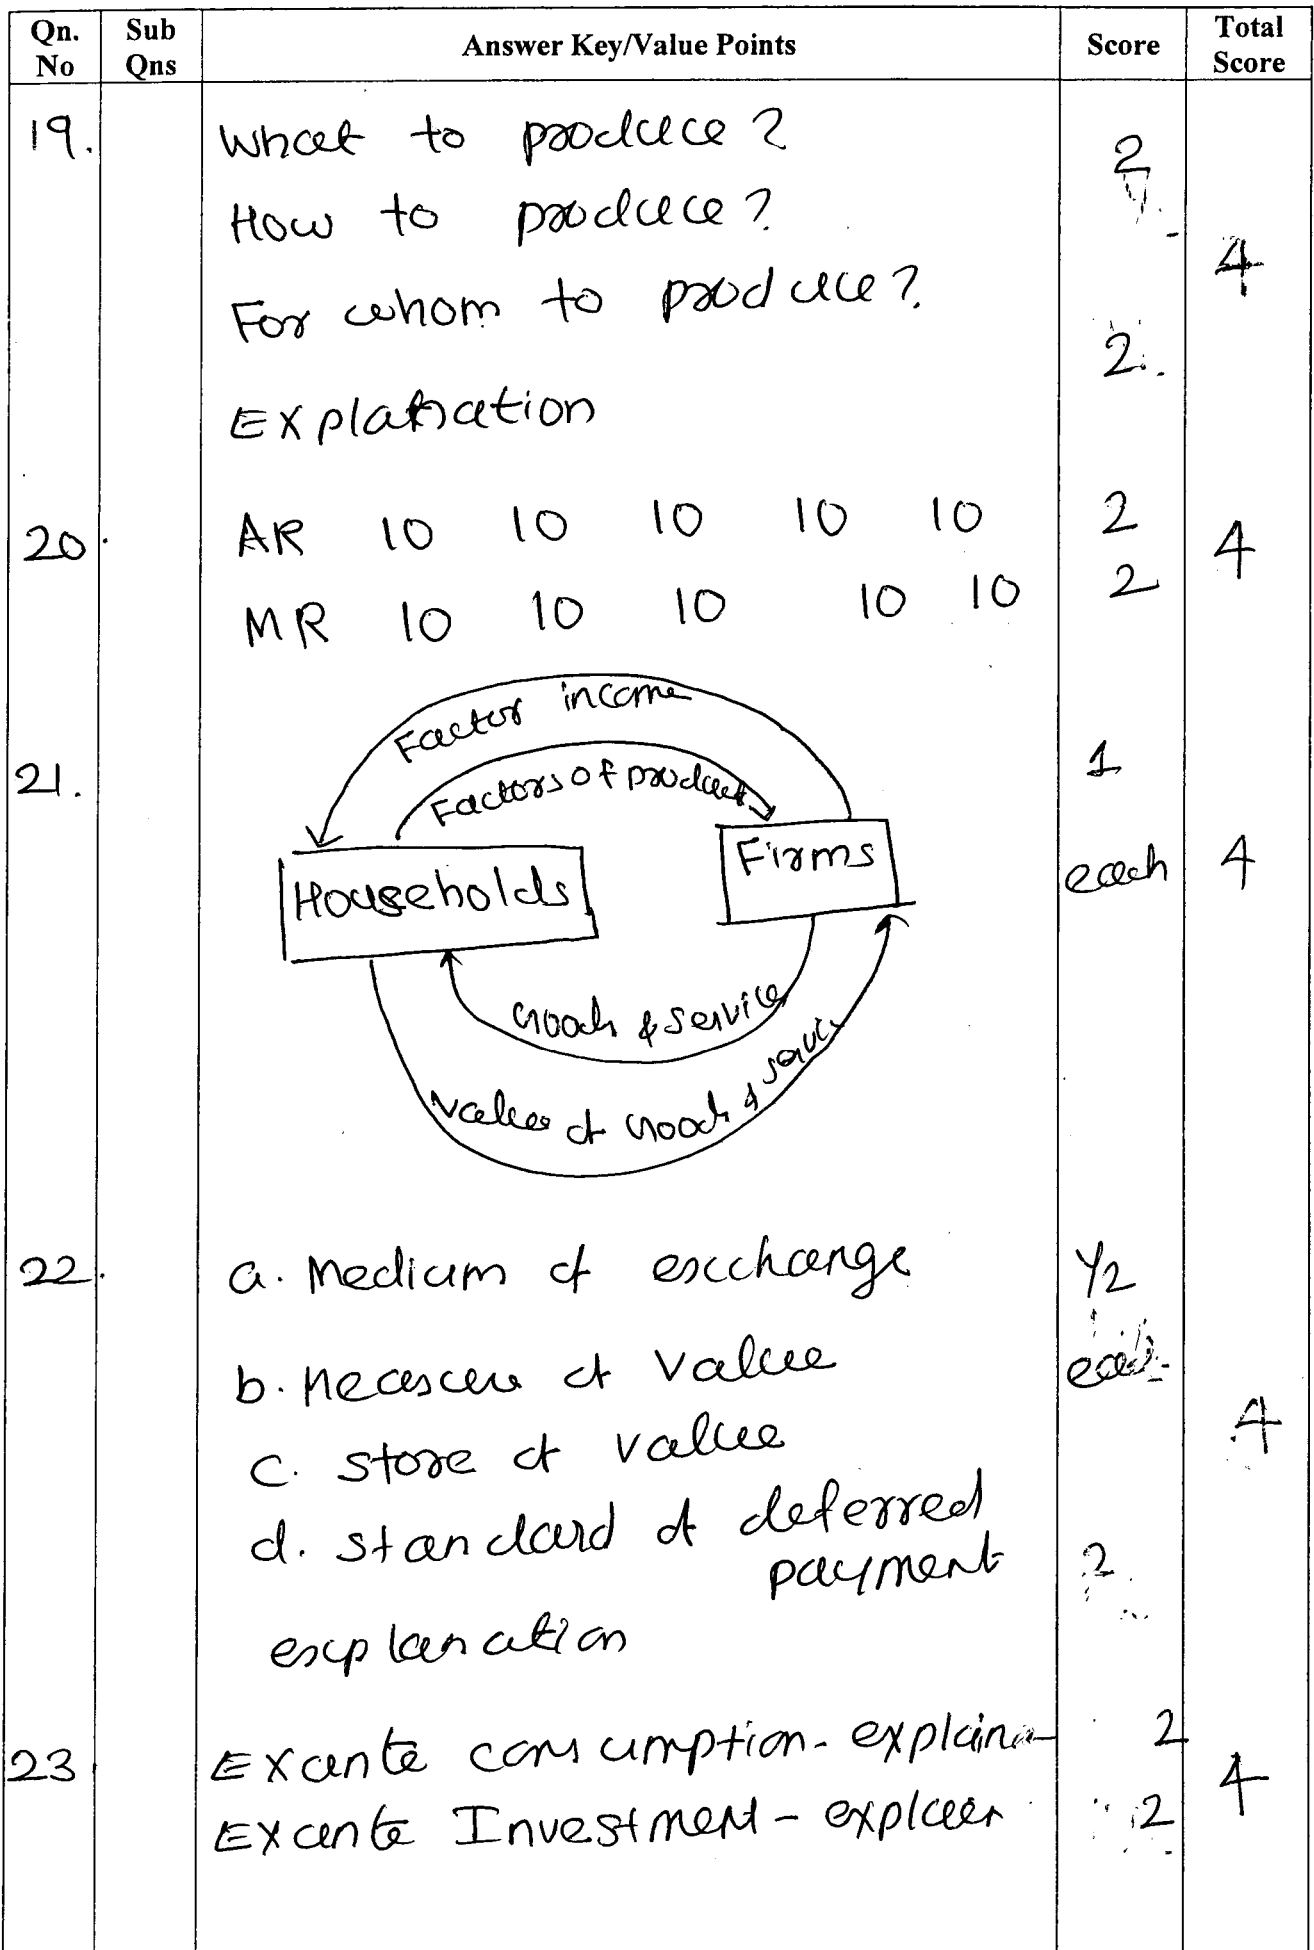 Qn. No Sub Qns Answer Key/Value Points Score Total Score
19. What to produce? 2
How to produce?
4
For whom to produce?
2.
Explanation
20. AR 10 10 10 10 10 2 4
MR 10 10 10 10 10 2
Factor income
21. Factors of product 1
Households Firms each 4
Goods & service
Value of Goods & servic
22. a. Medium of exchange 1/2
b. Measure of value each
c. store of value 4
d. standard of deferred
payment 2
explanation
23 Exante consumption - explaina 2 4
Exante Investment - explain 2